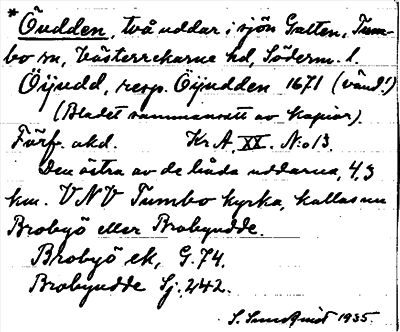 * Öudden, två uddar i sjön Galten, Tum-
bo sn, Västerrekarne hd, Söderm. l.
Öijudd, resp. Öijudden 1671 (vänd!)
(Bladet sammansatt av kopior).
Förf. okd. Kr A, XX. N:o 13.
Den östra av de båda uddarna, 4,3
km. VNV Tumbo kyrka, kallas nu
Brobyö eller Brobyudde.
Brobyö ek, G. 74.
Brobyudde Sj. 242.
S. Sundqvist 1935.